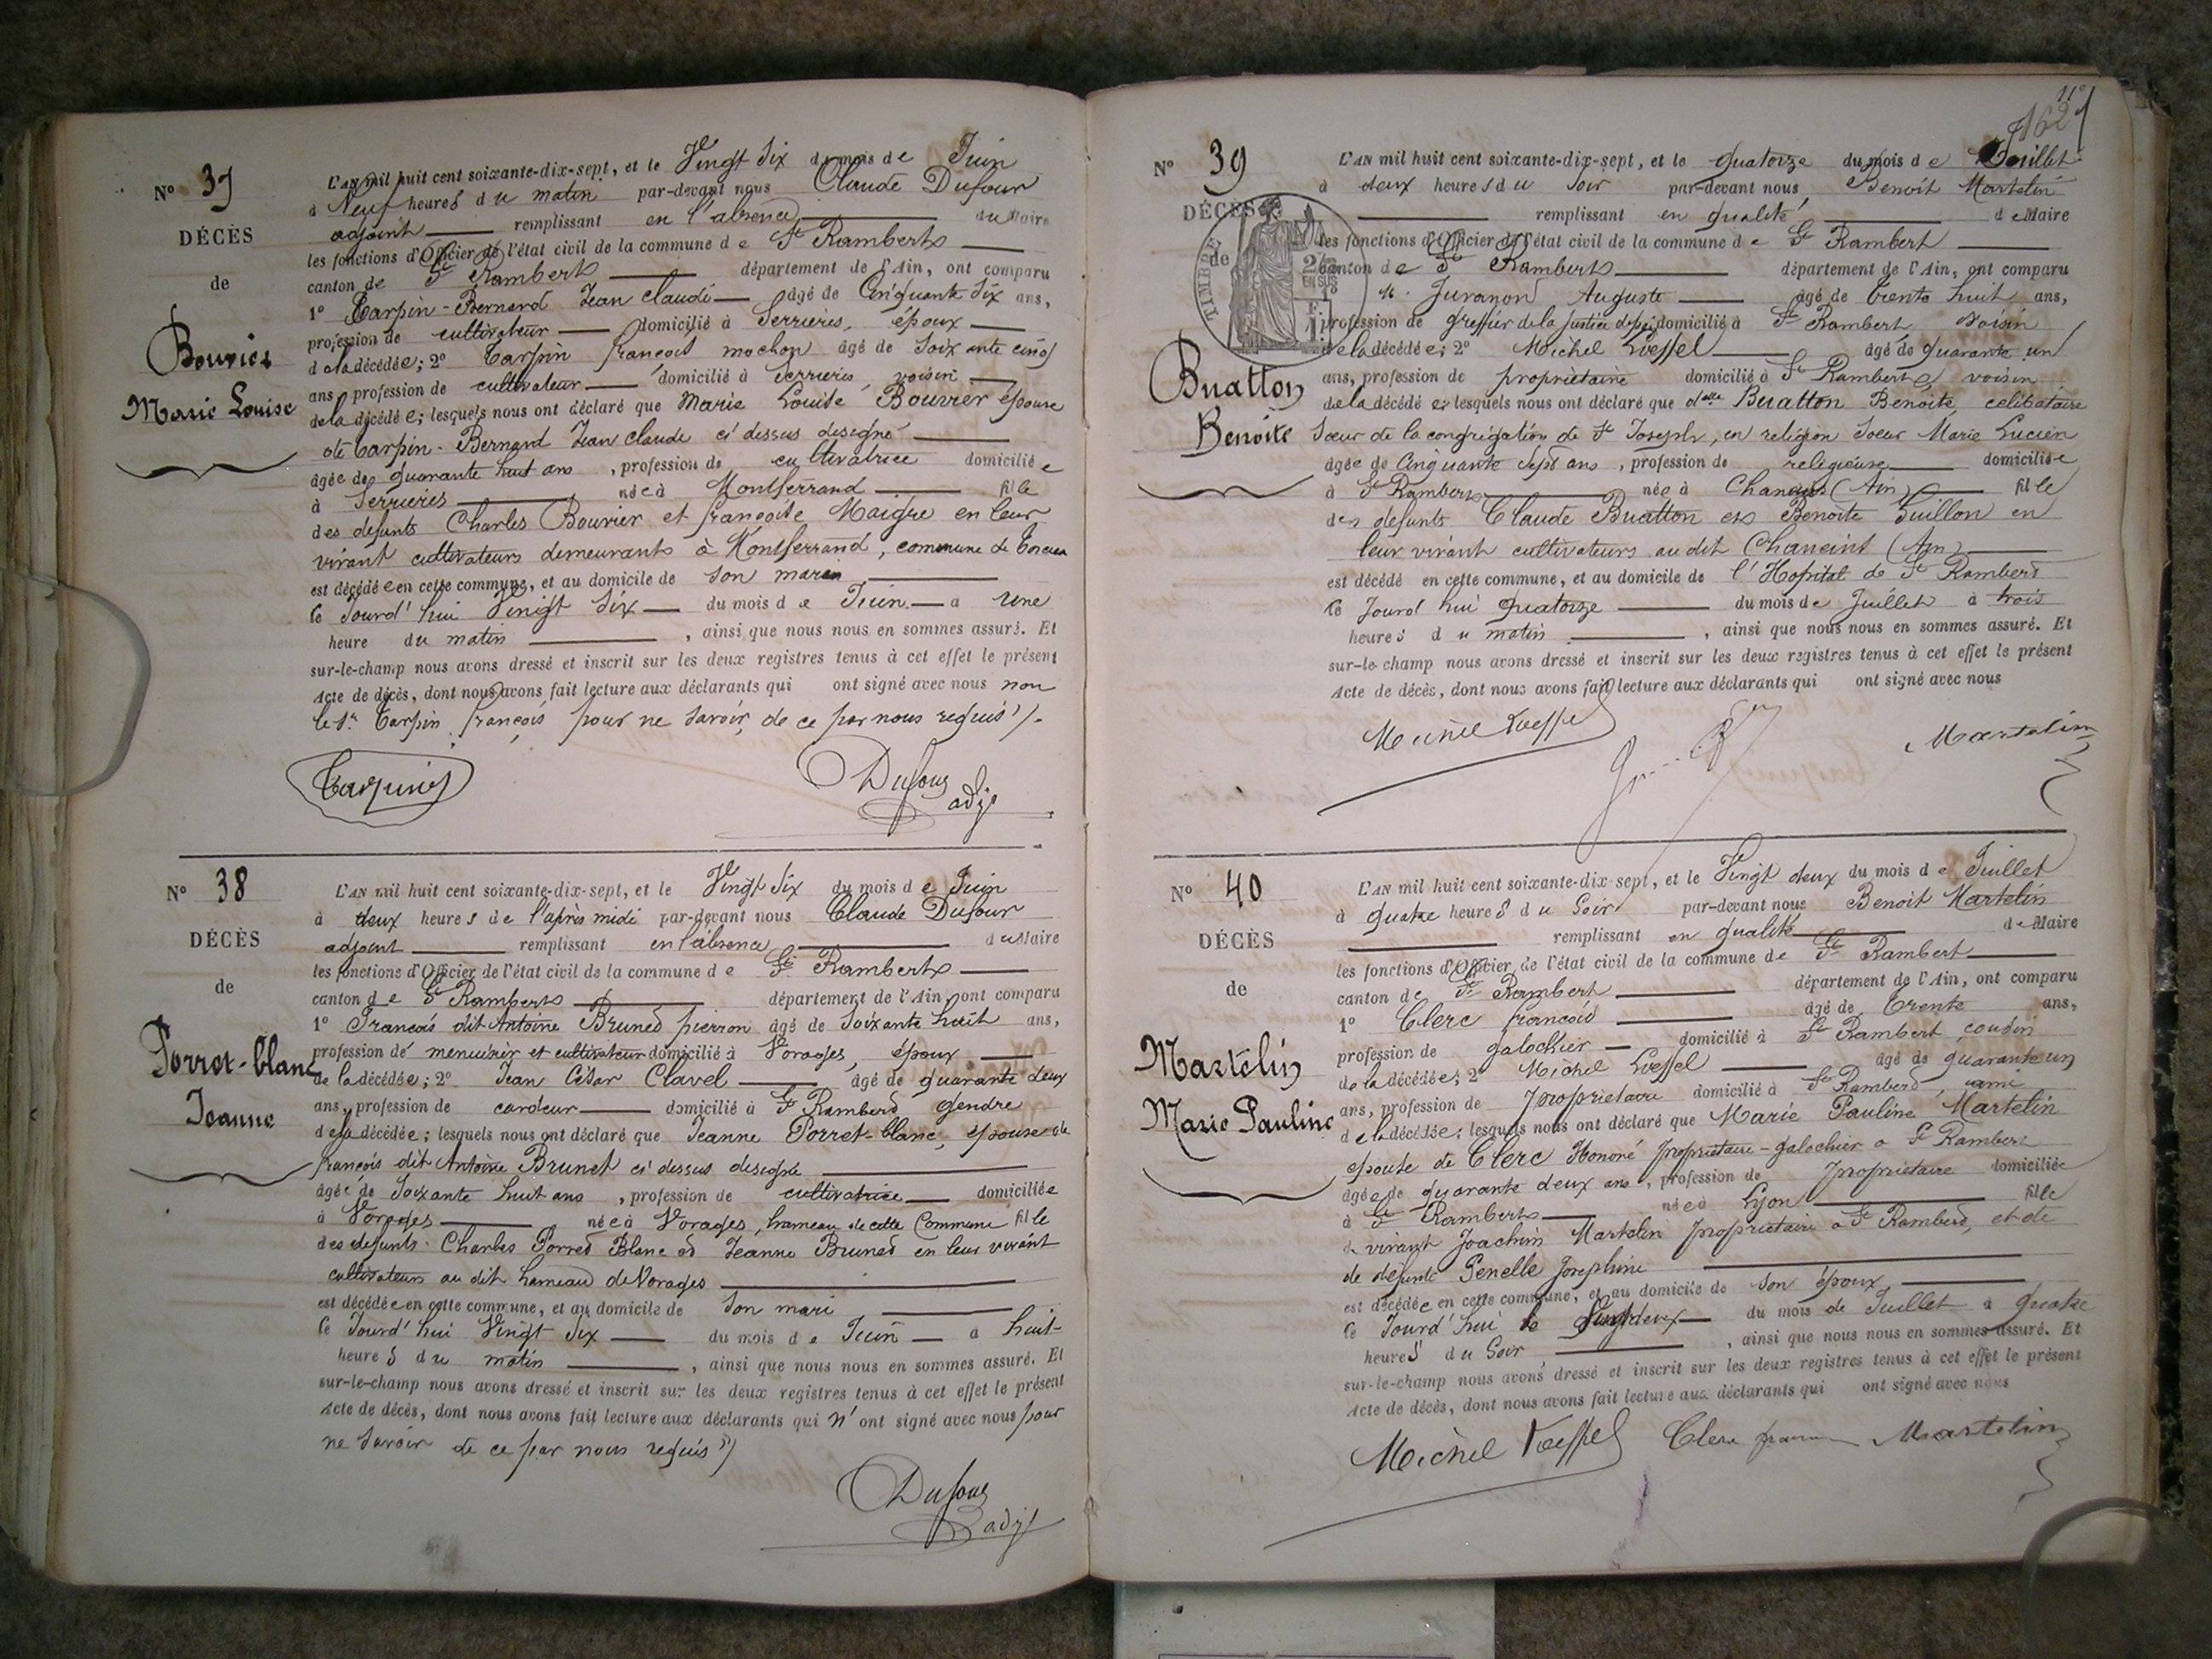 N° 37
DÉCÈS
de
Bouvier
Marie Louise
L'AN mil huit cent soixante-dix-sept, et le Vingt Six du mois de Juin
à Neuf heures du matin par-devant nous Claude Dufour
adjoint remplissant en l'absence du Maire
les fonctions d'Officier de l'état civil de la commune de St Rambert
canton de St Rambert département de l'Ain, ont comparu
1° Carpin-Bernard Jean Claude âgé de Cinquante Six ans,
profession de cultivateur domicilié à Serrieres, époux
de la décédée; 2° Carpin françois mochon âgé de Soixante cinq
ans, profession de cultivateur domicilié à Serrieres, voisin
de la décédée; lesquels nous ont déclaré que Marie Louise Bouvier épouse
de Carpin-Bernard Jean claude ci dessus designé
âgée de quarante huit ans, profession de cultivatrice domiciliée
à Serrieres née à Montferrand fille
des defunts Charles Bouvier et françoise Maigre en leur
vivant cultivateurs demeurants à Montferrand, commune de Torcieu
est décédée en cette commune, et au domicile de son mari
le Jourd'hui Vingt Six du mois de Juin à Une
heure du matin, ainsi que nous nous en sommes assuré. Et
sur-le-champ nous avons dressé et inscrit sur les deux registres tenus à cet effet le présent
Acte de décès, dont nous avons fait lecture aux déclarants qui ont signé avec nous non
le Sr. Carpin françois pour ne savoir, de ce par nous requis
Dufour
adj
N° 38
DÉCÈS
de
Porret-blanc
Jeanne
L'AN mil huit cent soixante-dix-sept, et le Vingt Six du mois de Juin
à deux heures de l'après midi par-devant nous Claude Dufour
adjoint remplissant en l'absence du Maire
les fonctions d'Officier de l'état civil de la commune de St Rambert
canton de St Rambert département de l'Ain, ont comparu
1° François dit Antoine Brunet pierron âgé de Soixante huit ans,
profession de menuisier et cultivateur domicilié à Vorages, époux
de la décédée; 2° Jean César Clavel âgé de quarante deux
ans, profession de cardeur domicilié à St Rambert gendre
de la décédée; lesquels nous ont déclaré que Jeanne Porret-blanc, épouse de
françois dit Antoine Brunet ci dessus designé
âgée de Soixante huit ans, profession de cultivatrice domiciliée
à Vorages née à Vorages, hameau de cette Commune fille
des defunts Charles Porret Blanc et Jeanne Brunet en leur vivant
cultivateurs au dit hameau de Vorages
est décédée en cette commune, et au domicile de son mari
le Jourd'hui Vingt Six du mois de Juin à huit
heures du matin, ainsi que nous nous en sommes assuré. Et
sur-le-champ nous avons dressé et inscrit sur les deux registres tenus à cet effet le présent
Acte de décès, dont nous avons fait lecture aux déclarants qui n'ont signé avec nous pour
ne savoir de ce par nous requis
Dufour
adj
162
N° 39
DÉCÈS
de
TIMBRE
Buatton
Benoite
L'AN mil huit cent soixante-dix-sept, et le quatorze du mois de Juillet
à deux heures du Soir par-devant nous, Benoit Martelin
remplissant en qualité de Maire
les fonctions d'Officier de l'état civil de la commune de St Rambert
canton de St Rambert département de l'Ain, ont comparu
1° M. Juranon Auguste âgé de trente huit ans,
profession de greffier de la justice de paix domicilié à St Rambert voisin
de la décédée; 2° Michel Lœffel âgé de quarante un
ans, profession de propriétaire domicilié à St Rambert, voisin
de la décédée lesquels nous ont déclaré que dlle Buatton Benoite, celibataire
Sœur de la congrégation de St Joseph, en religion Soeur Marie Lucien
âgée de Cinquante Sept ans, profession de religieuse domiciliée
à St Rambert née à Chaneins (Ain) fille
des defunts Claude Buatton et Benoite Guillon en
leur vivant cultivateurs au dit Chaneins (Ain)
est décédé en cette commune, et au domicile de l'Hopital de St Rambert
le Jourd'hui quatorze du mois de Juillet à trois
heures du matin, ainsi que nous nous en sommes assuré. Et
sur-le-champ nous avons dressé et inscrit sur les deux registres tenus à cet effet le présent
Acte de décès, dont nous avons fait lecture aux déclarants qui ont signé avec nous
Michel Lœffel Martelin
N° 40
DÉCÈS
de
Martelin
Marie Pauline
L'AN mil huit cent soixante-dix-sept, et le Vingt deux du mois de Juillet
à quatre heures du Soir par-devant nous Benoit Martelin
remplissant en qualité de Maire
les fonctions d'Officier de l'état civil de la commune de St Rambert
canton de St Rambert département de l'Ain, ont comparu
1° Clerc françois âgé de trente ans,
profession de galochier domicilié à St Rambert, cousin
de la décédée; 2° Michel Lœffel âgé de quarante un
ans, profession de propriétaire domicilié à St Rambert, ami
de la décédée; lesquels nous ont déclaré que Marie Pauline Martelin
épouse de Clerc Honoré propriétaire-galochier à St Rambert
âgée de quarante deux ans, profession de propriétaire domiciliée
à St Rambert née à Lyon fille
de vivant Joachim Martelin propriétaire à St Rambert, et de
de defunte Penelle Josephine
est décédée en cette commune, et au domicile de son époux
le Jourd'hui le Vingt deux du mois de Juillet à quatre
heures du Soir, ainsi que nous nous en sommes assuré. Et
sur-le-champ nous avons dressé et inscrit sur les deux registres tenus à cet effet le présent
Acte de décès, dont nous avons fait lecture aux déclarants qui ont signé avec nous
Michel Lœffel Clerc françois Martelin